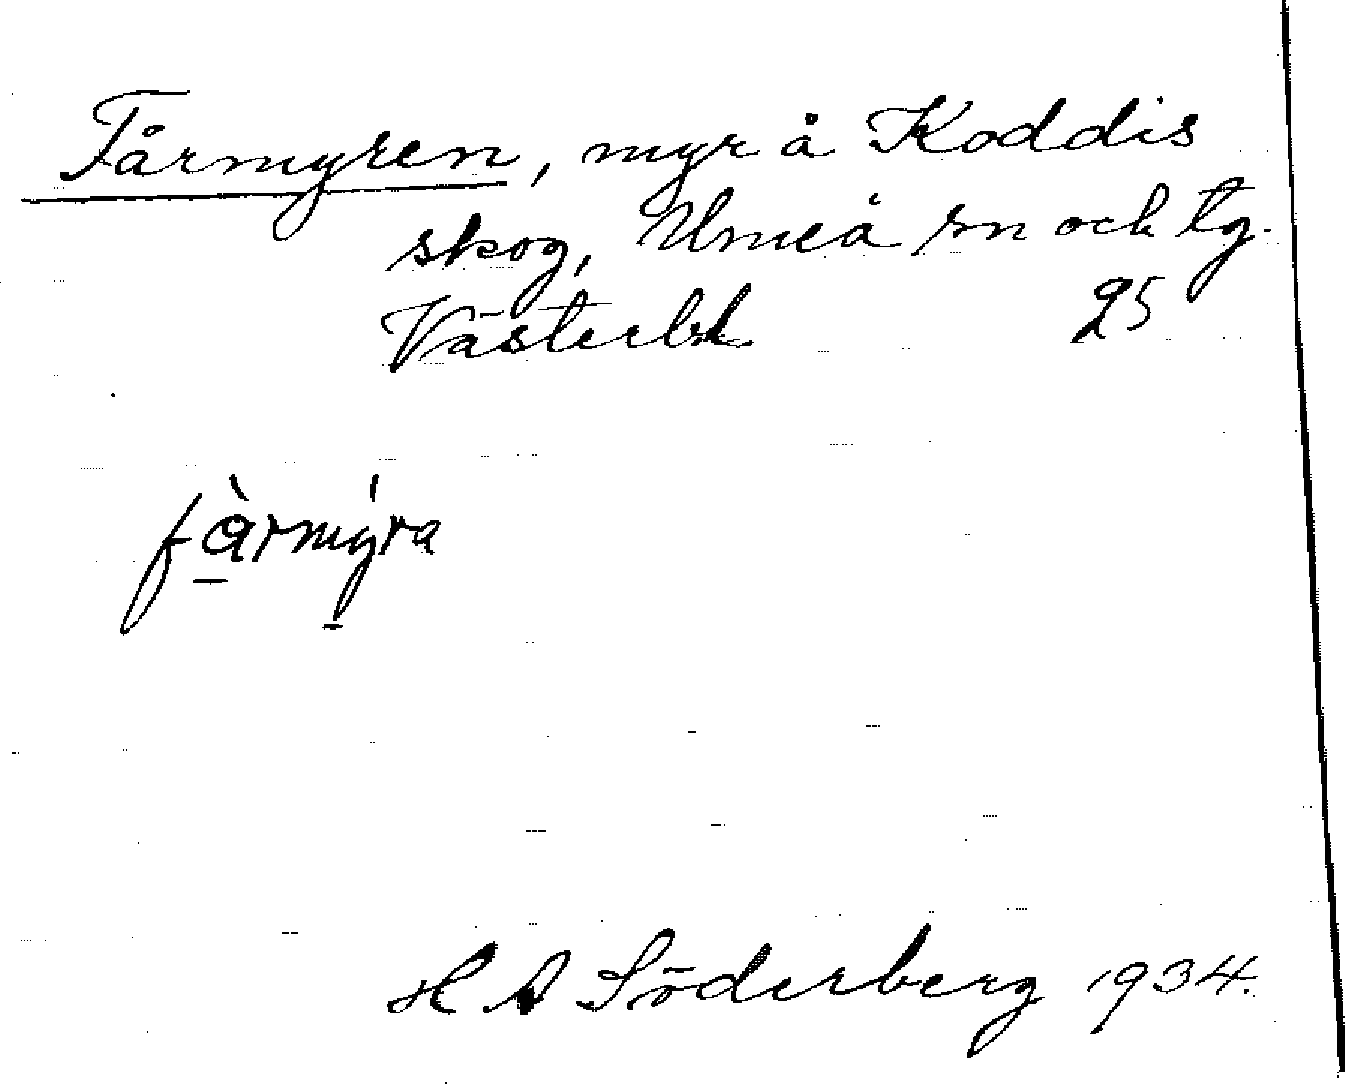 Fårmyren, myr å Koddis
skog, Umeå sn och tg.
Västerb.l. 25
fàrmýra
H A Söderberg 1934.